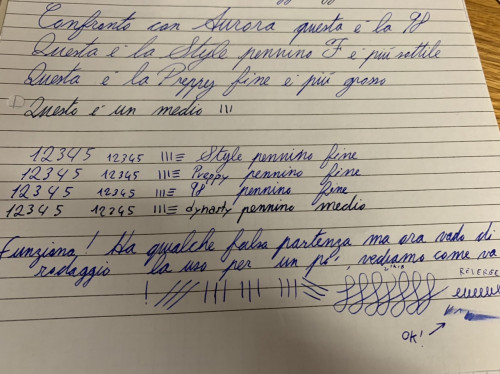 Confronto con Aurora questa è la 98
Questa è la Style pennino F è più sottile
Questa è la Preppy fine è più grosso
Questo è un medio !!!
12345 12345 III≡ Style pennino fine
12345 12345 III≡ Preppy pennino fine
12345 12345 III≡ 98 pennino fine
12345 12345 III≡ dynasty pennino medio
Funziona! Ha qualche falsa partenza ma ora vado di
rodaggio la uso per un po', vediamo come va
REVERSE
OK!